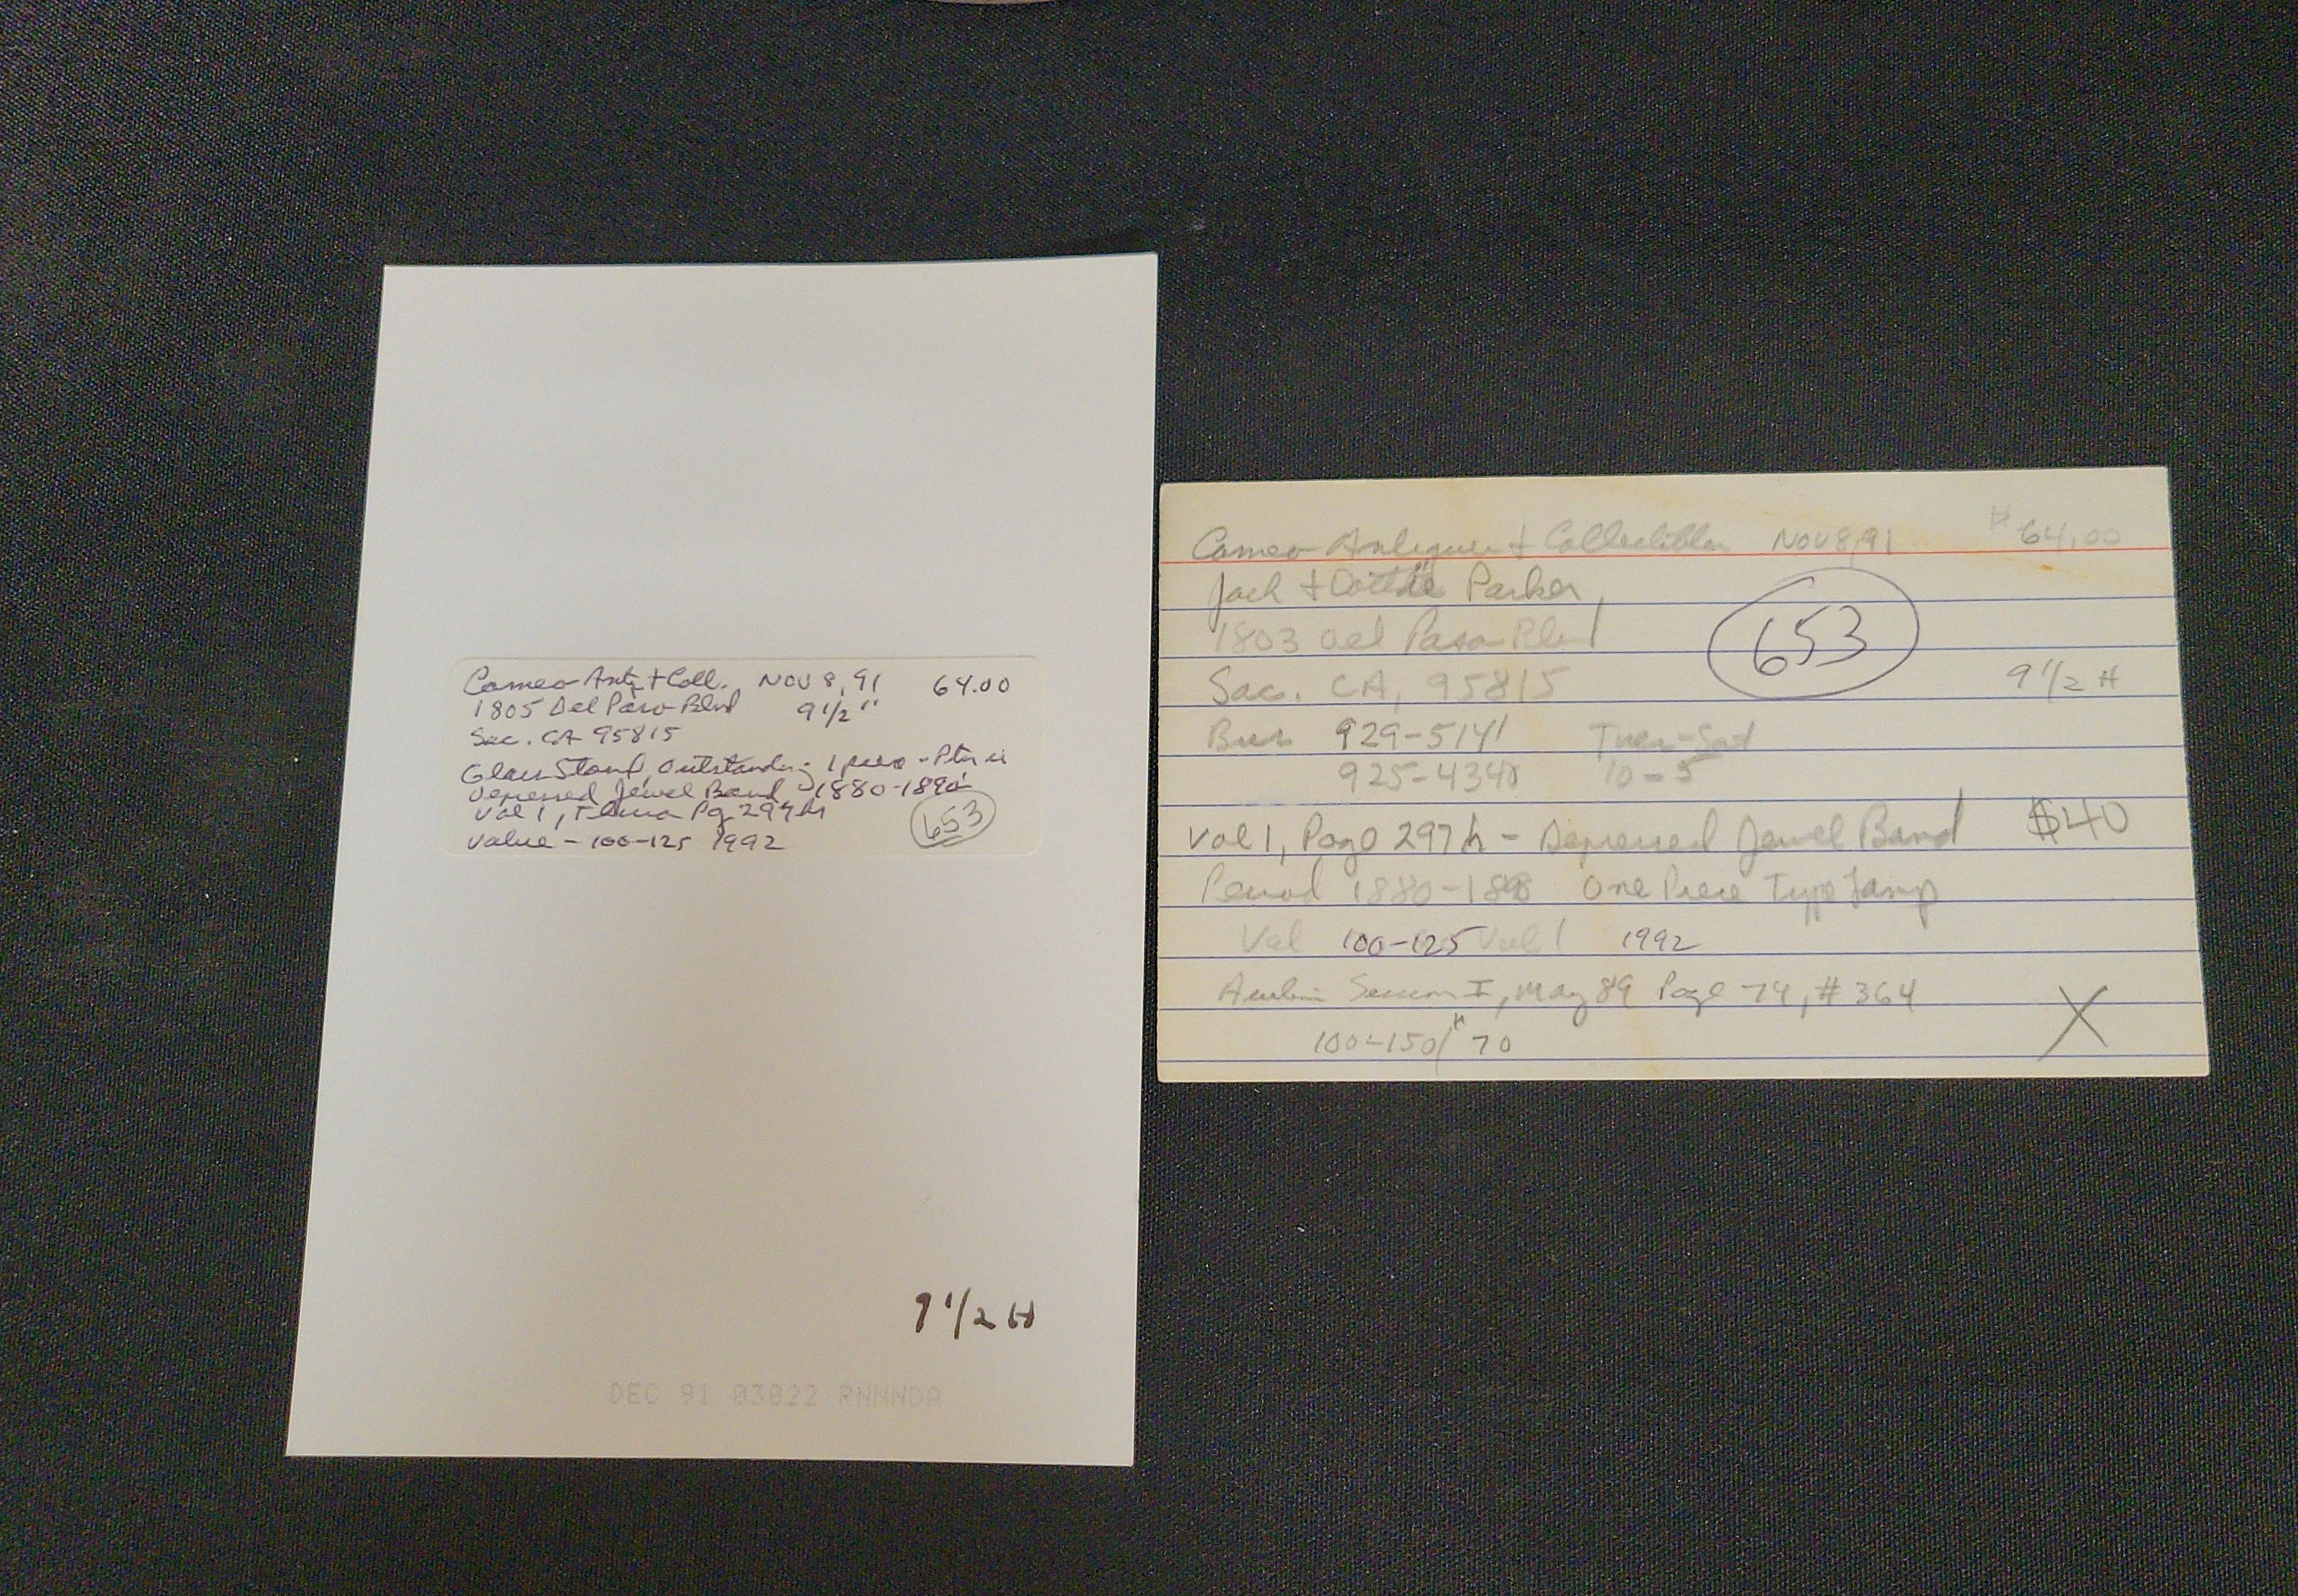 Cameo Antq + Coll. NOV 8, 91 64.00
1805 Del Paso Blvd 9 1/2 "
Sac. CA 95815
Glass Stand, Outstanding 1 piece - Ptn is
Depressed Jewel Band, 1880-1890
Vol 1, Thuro Pg 297 h
Value - 100-125 1992
653
9 1/2 H
DEC 91 03022 RNNNDA
Cameo Antiques + Collectibles NOV 8, 91 $64.00
Jack + Dottie Parker,
1803 Del Paso Blvd
653
Sac. CA, 95815 9 1/2 H
Bus 929-5141 Tues-Sat
925-4348 10-5
Vol 1, Page 297 h - Depressed Jewel Band $40
Period 1880-1890 One Piece Type Lamp
Val 100-125 Vol 1 1992
Session I, May 89 Page 74, # 364
100-150/ $70
X